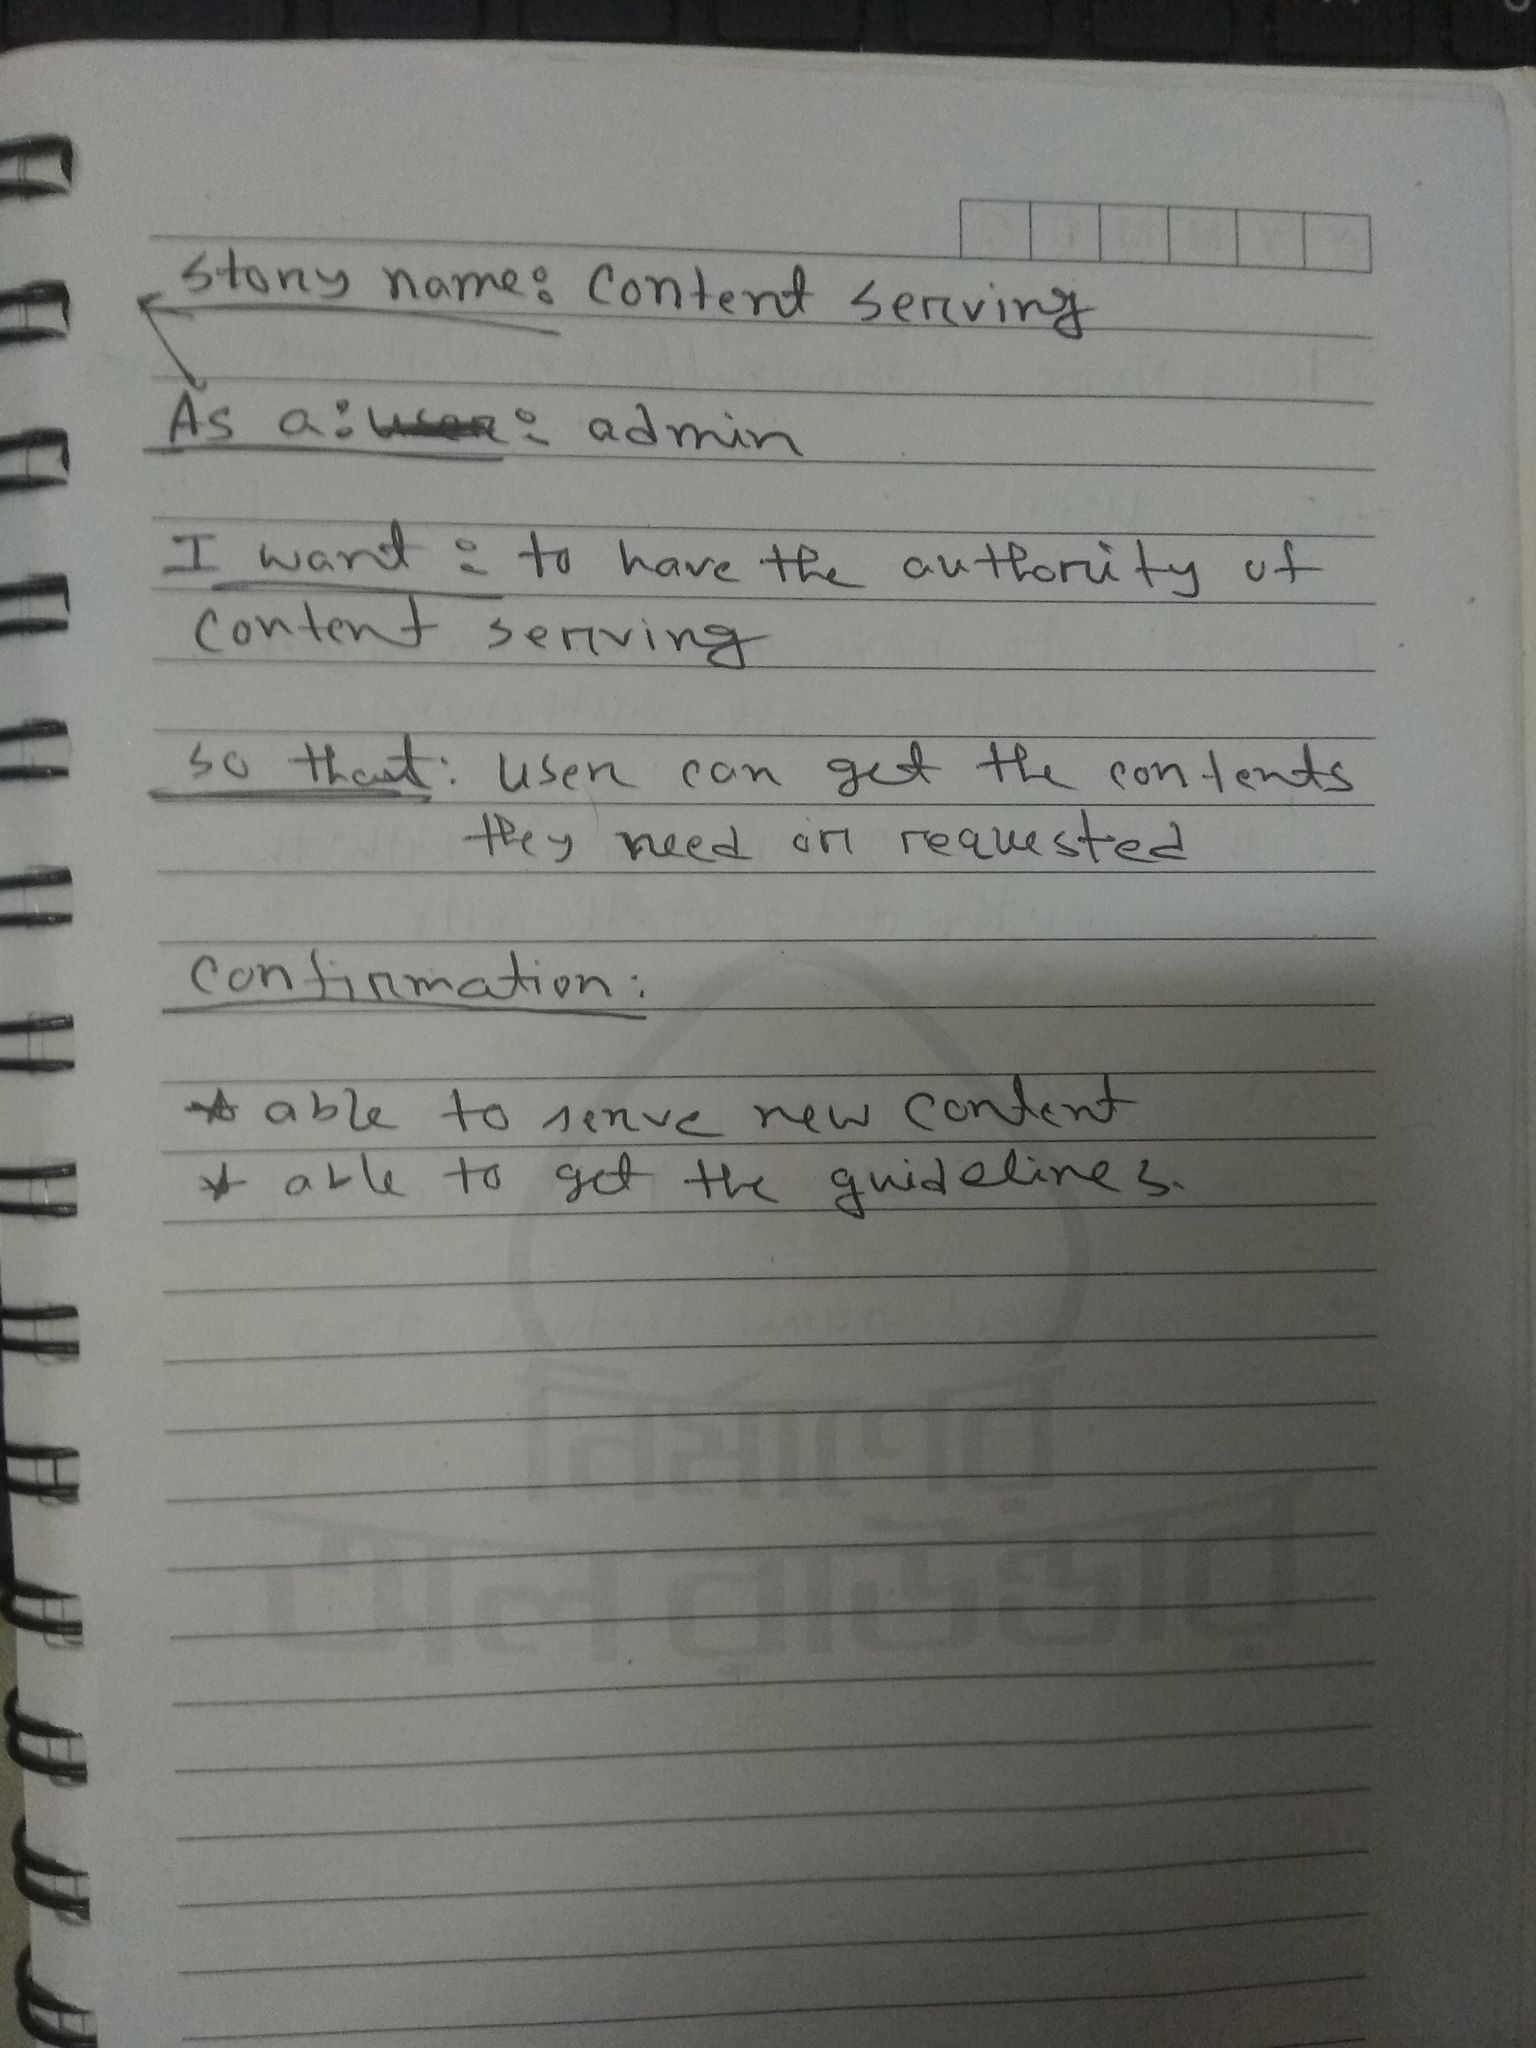 Story name: Content serving
As a: user: admin
I want: to have the authority of
content serving
so that: user can get the contents
they need or requested
Confirmation:
* able to serve new content
* able to get the guidelines.